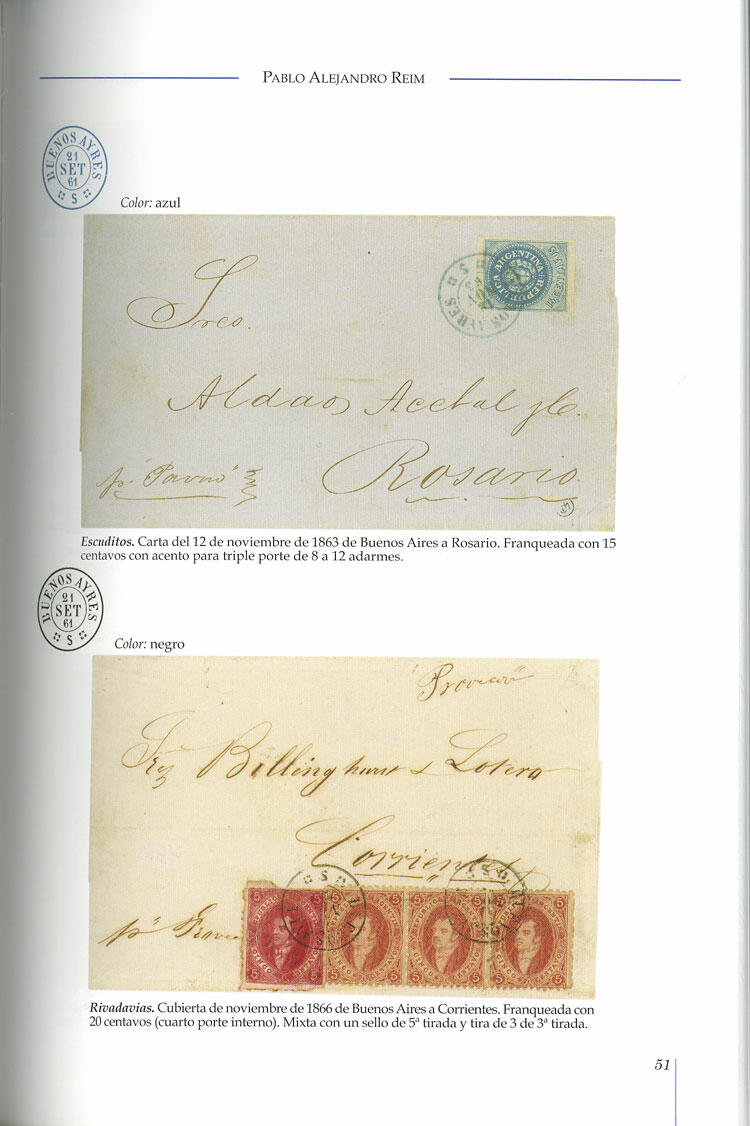 PABLO ALEJANDRO REIM
BUENOS AYRES
21
SET
61
S
Color: azul
REPUBLICA ARGENTINA
Sres.
Aldao Acebal
Rosario.
Escuditos. Carta del 12 de noviembre de 1863 de Buenos Aires a Rosario. Franqueada con 15
centavos con acento para triple porte de 8 a 12 adarmes.
BUENOS AYRES
21
SET
61
S
Color: negro
Billinghurst
Corrientes
5 5 5 5 5 5 5
Rivadavias. Cubierta de noviembre de 1866 de Buenos Aires a Corrientes. Franqueada con
20 centavos (cuarto porte interno). Mixta con un sello de 5ª tirada y tira de 3 de 3ª tirada.
51